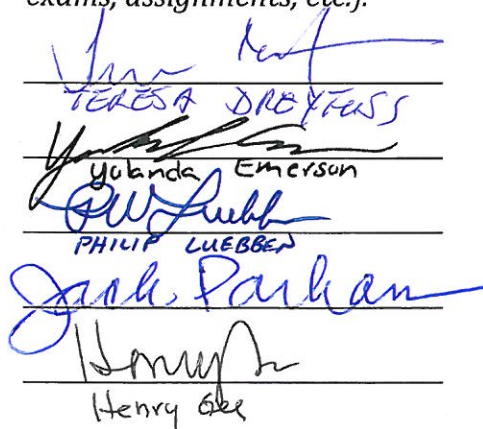 exams, assignments, etc.).
TERESA DREYFUSS
Yolanda Emerson
PHILIP LUEBBEN
Jack
Henry
Henry Gee